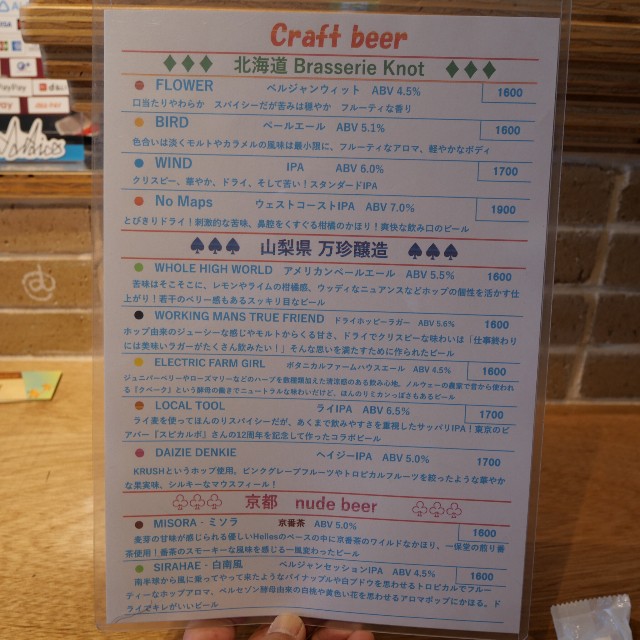 Craft beer
北海道 Brasserie Knot
FLOWER ベルジャンウィット ABV 4.5% 1600
口当たりやわらか スパイシーだが苦みは穏やか フルーティな香り
BIRD ペールエール ABV 5.1% 1600
色合いは淡くモルトやカラメルの風味は最小限に、フルーティなアロマ、軽やかなボディ
WIND IPA ABV 6.0% 1700
クリスピー、華やか、ドライ、そして苦い！スタンダードIPA
No Maps ウェストコーストIPA ABV 7.0% 1900
とびきりドライ！刺激的な苦味、鼻腔をくすぐる柑橘のかほり！爽快な飲み口のビール
山梨県 万珍醸造
WHOLE HIGH WORLD アメリカンペールエール ABV 5.5% 1600
苦味はそこそこに、レモンやライムの柑橘感、ウッディなニュアンスなどホップの個性を活かす仕
上がり！若干のベリー感もあるスッキリ目なビール
WORKING MANS TRUE FRIEND ドライホッピーラガー ABV 5.6% 1600
ホップ由来のジューシーな感じやモルトからくる甘さ、ドライでクリスピーな味わいは「仕事終わり
には美味いラガーがたくさん飲みたい！」そんな思いを満たすために作られたビール
ELECTRIC FARM GIRL ボタニカルファームハウスエール ABV 4.5% 1600
ジュニパーベリーやローズマリーなどのハーブを数種類加えた清涼感のある飲み心地、ノルウェーの農家で昔から使われ
る『クベーク』という酵母の働きでニュートラルな味わいだけど、ほんのりミカンっぽさもあるビール
LOCAL TOOL ライIPA ABV 6.5% 1700
ライ麦を使ってほんのりスパイシーだが、あくまで飲みやすさを重視したサッパリIPA！東京のビ
アバー『スピカルボ』さんの12周年を記念して作ったコラボビール
DAIZIE DENKIE ヘイジーIPA ABV 5.0% 1700
KRUSHというホップ使用。ピンクグレープフルーツやトロピカルフルーツを絞ったような華やか
な果実味、シルキーなマウスフィール！
京都 nude beer
MISORA・ミソラ 京番茶 ABV 5.0% 1600
麦芽の甘味が感じられる優しいHellesのベースの中に京番茶のワイルドなかほり、一保堂の煎り番
茶使用！番茶のスモーキーな風味を感じる一風変わったビール
SIRAHAE・白南風 ベルジャンセッションIPA ABV 4.5% 1600
南半球から風に乗ってやって来たようなパイナップルや白ブドウを思わせるトロピカルでフルー
ティーなホップアロマ、ベルセゾン酵母由来の白桃や黄色い花を思わせるアロマがポップにかほる。ド
ライでキレがいいビール